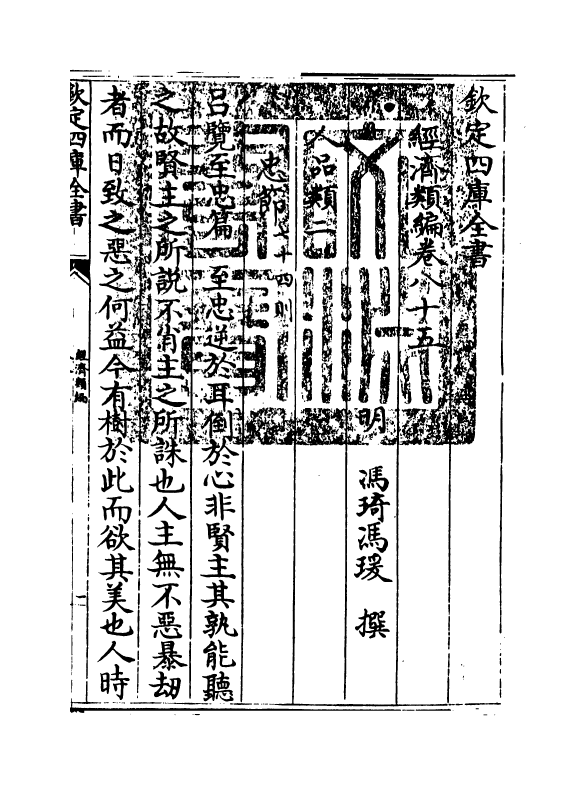 欽定四庫全書
經濟類編卷八十五
明 馮琦馮瑗 撰
人品類二
忠節七十四則
呂覽至忠篇 至忠逆於耳倒於心非賢主其孰能聽
之故賢主之所説不肖主之所誅也人主無不惡暴劫
者而日致之惡之何益今有樹於此而欲其美也人時
欽定四庫全書
經濟類編